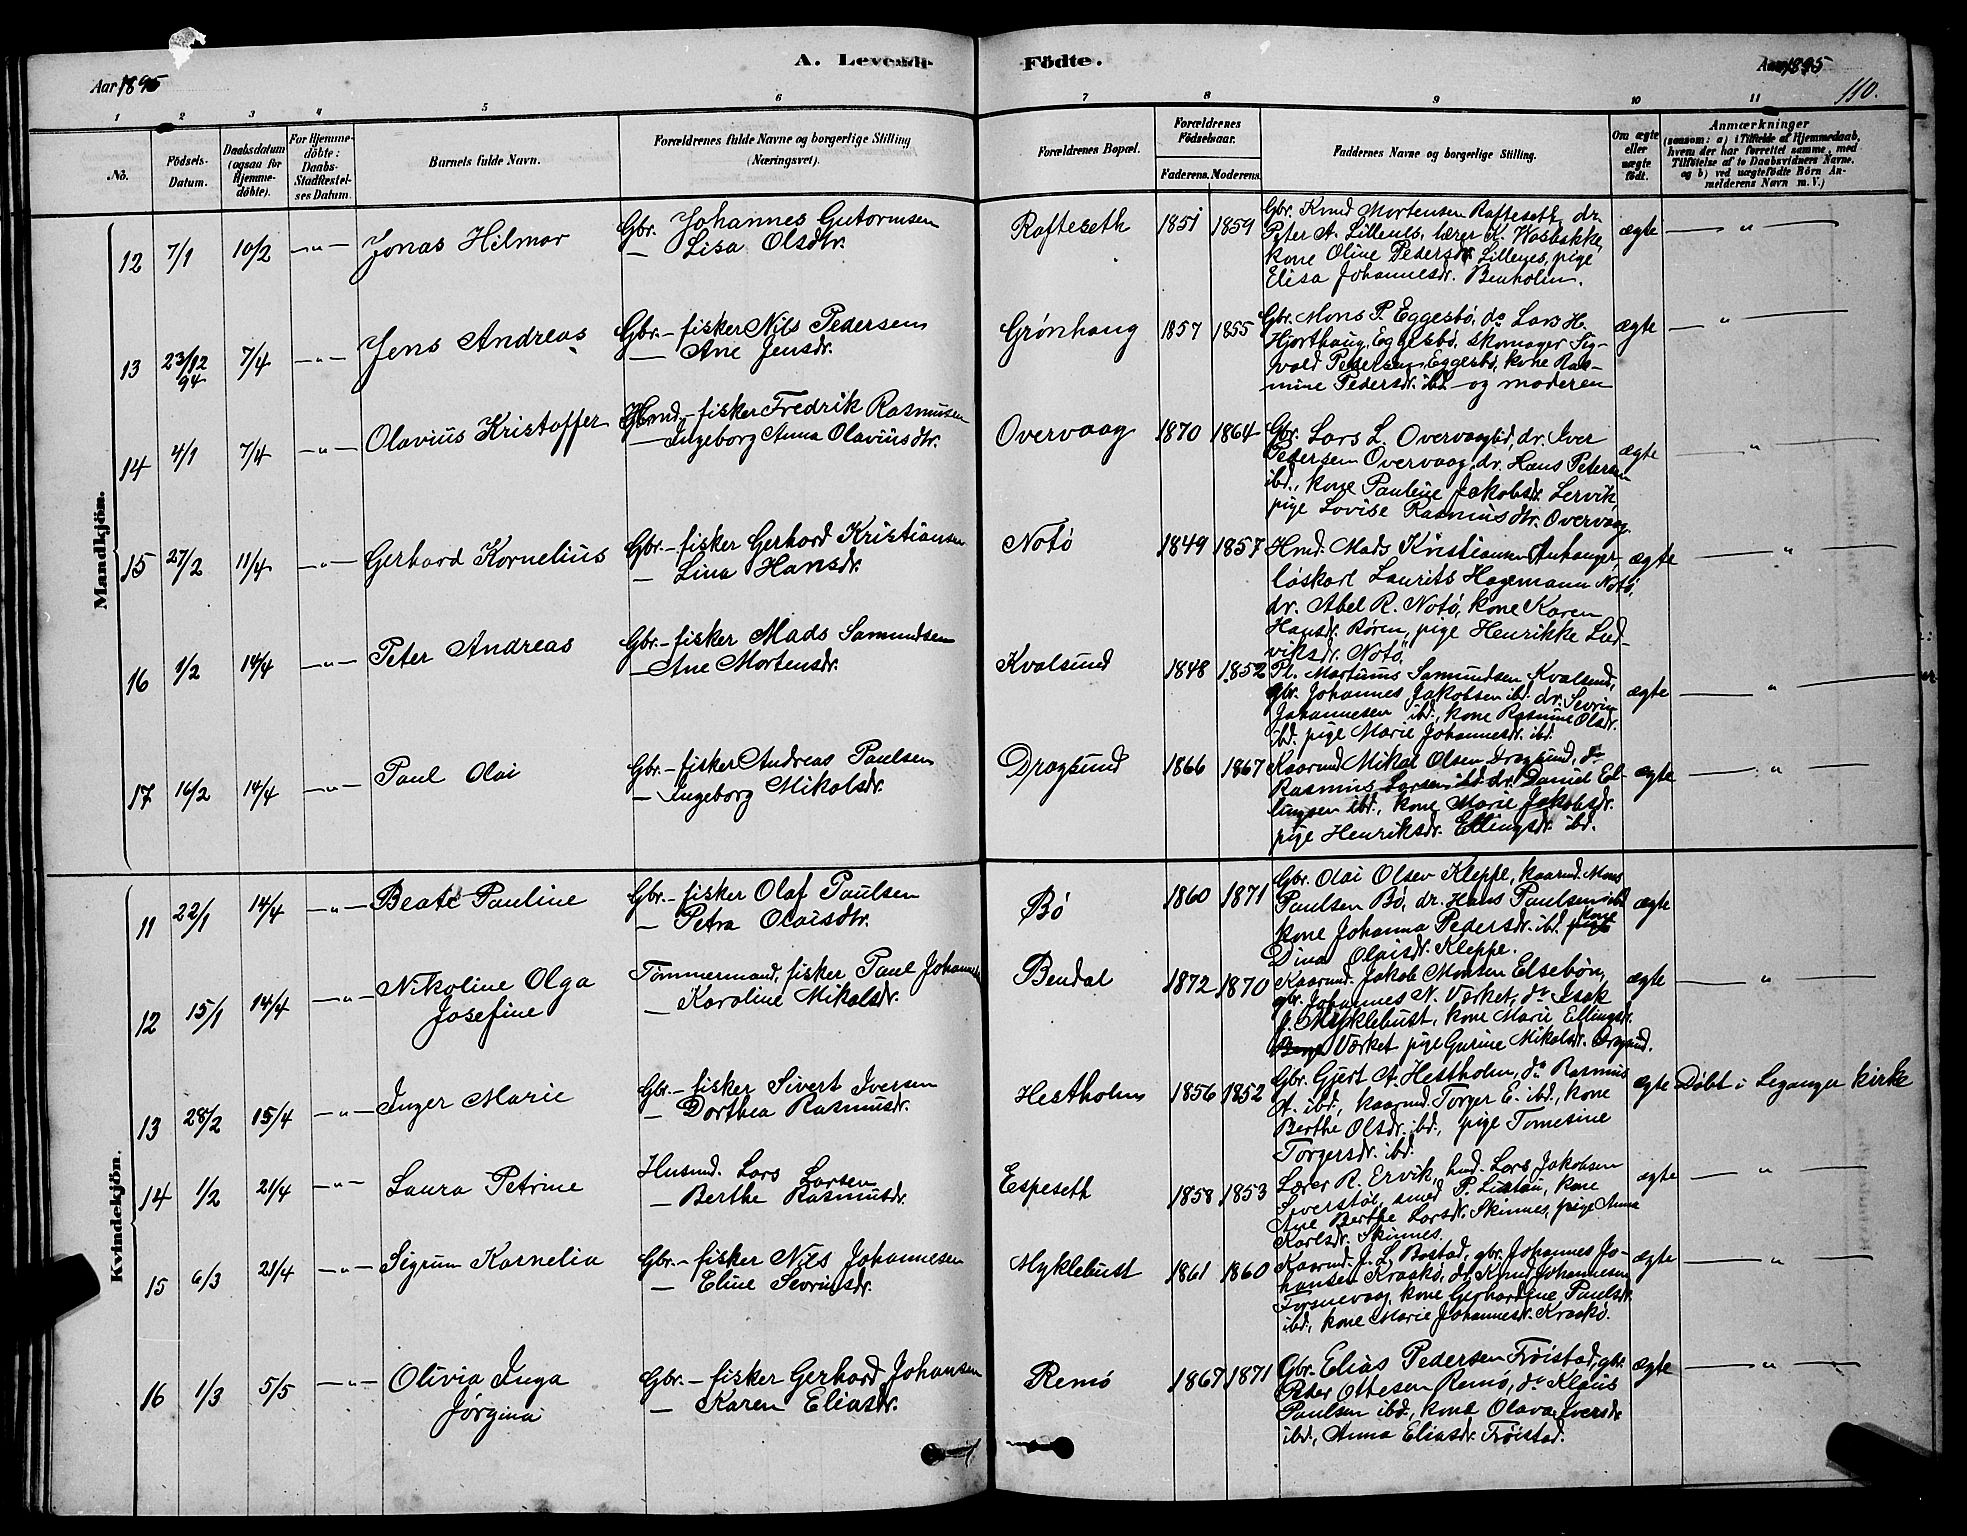 Aar 1895
A. Levende
Födte.
Aar 1895
110.
1
2
3
4
5
6
7
8
9
10
11
No.
Födsels-Datum.
Daabsdatum (ogsaa for Hjemmedöbte).
For Hjemmedöbte: Daabs-Stadfæstelses Datum.
Barnets fulde Navn.
Forældrenes fulde Navne og borgerlige Stilling (Næringsvei).
Forældrenes Bopæl.
Forældrenes Födselsaar.
Faderens. Moderens.
Faddernes Navne og borgerlige Stilling.
Om ægte eller uægte födt.
Anmærkninger
(saasom: a) i Tilfælde af Hjemmedaab, hvem der har forrettet samme, med Tilföielse af to Daabsvidners Navne, og b) ved uægtefödte Börn Anmelderens Navn m. V.)
Mandkjön.
12 7/1 10/2 —"— Jonas Hilmar
Gbr. Johannes Gutormsen
— Lisa Olsdtr.
Rafteseth 1851 1859
Gbr. Knud Mortensen Rafteseth, dr.
Peter A. Lillenes, lærer K. Hasbakke,
kone Oline Pedersdr. Lillenes, pige
Elisa Johannesdr. Benholm.
ægte — " —
13 23/12 94 7/4 —"— Jens Andreas
Gbr. – fisker Nils Pedersen
— Ane Jensdr.
Grønhaug 1857 1855
Gbr. Mons P. Eggesbø, do Lars H.
Hjorthaug, Eggesbø, skomager Sig-
vald Pedersen Eggesbø, kone Ras-
mine Pedersdr. ibd. og moderen
ægte — " —
14 4/1 7/4 —"— Olavius Kristoffer
– fisker Fredrik Rasmusen
— Ingeborg Anna Olaviusdtr.
Overvaag 1870 1864
Gbr. Lars L. Overvaag, dr. Iver
Pedersen Overvaag, dr. Hans Petersen
ibd., kone Pauline Jakobsdr. Lervik,
pige Lovise Rasmusdtr. Overvaag
ægte — " —
15 27/2 11/4 —"— Gerhard Kornelius
Gbr. – fisker Gerhard Kristiansen
— Lina Hansdr.
Notø 1849 1857
Hmd. Mads Kristiansen
løskarl Laurits Hagemann Notø,
dr. Abel R. Notø, kone Karen
Hansdr. Røren, pige Henrikke Lud-
viksdr. Notø.
ægte — " —
16 1/2 14/4 —"— Peter Andreas
Gbr. – fisker Mads Samundsen
— Ane Mortensdr.
Kvalsund 1848 1852
Pl. Martinus Samundsen Kvalsund,
gbr. Johannes Jakobsen ibd. dr. Sevrin
Johannesen ibd., kone Rasmine Olsdr.
ibd. pige Marie Johannesdr. ibd.
ægte — " —
17 16/2 14/4 —"— Paul Olai
Gbr. – fisker Andreas Paulsen
— Ingeborg Mikalsdr.
Dragsund 1866 1867
Kaarmd. Mikal Olsen Dragsund, do
Rasmus Larsen ibd. dr. Daniel El-
lingsen ibd., kone Marie Jakobsdr.
pige Henriksdr. Ellingsdr. ibd.
ægte — " —
Kvindekjön.
11 22/1 14/4 —"— Beate Pauline
Gbr. – fisker Olaf Paulsen
— Petra Olaisdtr.
Bø 1860 1871
Gbr. Olai Olsen Kleppe, kaarmd. Mons
Paulsen Bø, dr. Hans Paulsen ibd
kone Johanna Pedersdr. ibd. kone
Dina Olaisdr. Kleppe.
ægte
12 15/1 14/4 —"— Nikoline Olga
Josefine
Tømmermand, fisker Paul Johannes
— Karoline Mikalsdr.
Bendal 1872 1870
Kaarmd. Jakob Monsen Elsebøn,
gbr. Johannes N. Værket, do Isak
J. Myklebust, kone Marie Ellingsdr.
Værket pige Gurine Mikalsdr. Dragsund.
ægte — " —
13 28/2 15/4 —"— Inger Marie
Gbr. – fisker Sivert Iversen
— Dorthea Rasmusdr.
Hestholm 1856 1852
Gbr. Gjert A. Hestholm, do Rasmus
A. ibd., kaarmd. Torger E. ibd., kone
Berthe Olsdr. ibd., pige Tomesine
Torgersdr. ibd.
ægte Döbt i Leganger kirke
14 1/2 21/4 —"— Laura Petrine
Husmd. Lars Larsen
— Berthe Rasmusdr.
Espeseth 1858 1853
Lærer R. Ervik, hmd. Lars Jakobsen
Sverstøl, smed P. kone
Ane Berthe Larsdr. Skinnes, pige Anna
Karlsdr. Skinnes.
ægte — " —
15 6/3 21/4 —"— Sigrun Karnelia
Gbr. – fisker Nils Johannesen
— Eline Sevrinsdr.
Myklebust 1861 1860
Kaarmd. J. L. Bøstad, gbr. Johannes Jo-
hansen Kraakø, dr. Knud Johannesen
Fosnevaag, kone Gerhardine Paulsdr.
ibd., kone Marie Johannesdr. Kraakø.
ægte — " —
16 1/3 5/5 —"— Olivia Inga
Jørgina
Gbr. – fisker Gerhard Johansen
— Karen Eliasdr.
Remø 1867 1871
Gbr. Elias Pedersen Frøistad, gbr.
Peder Ottesen Remø, do Klaus
Paulsen ibd., kone Olava Iversdr.
ibd., Anna Eliasdr. Frøistad.
ægte — " —